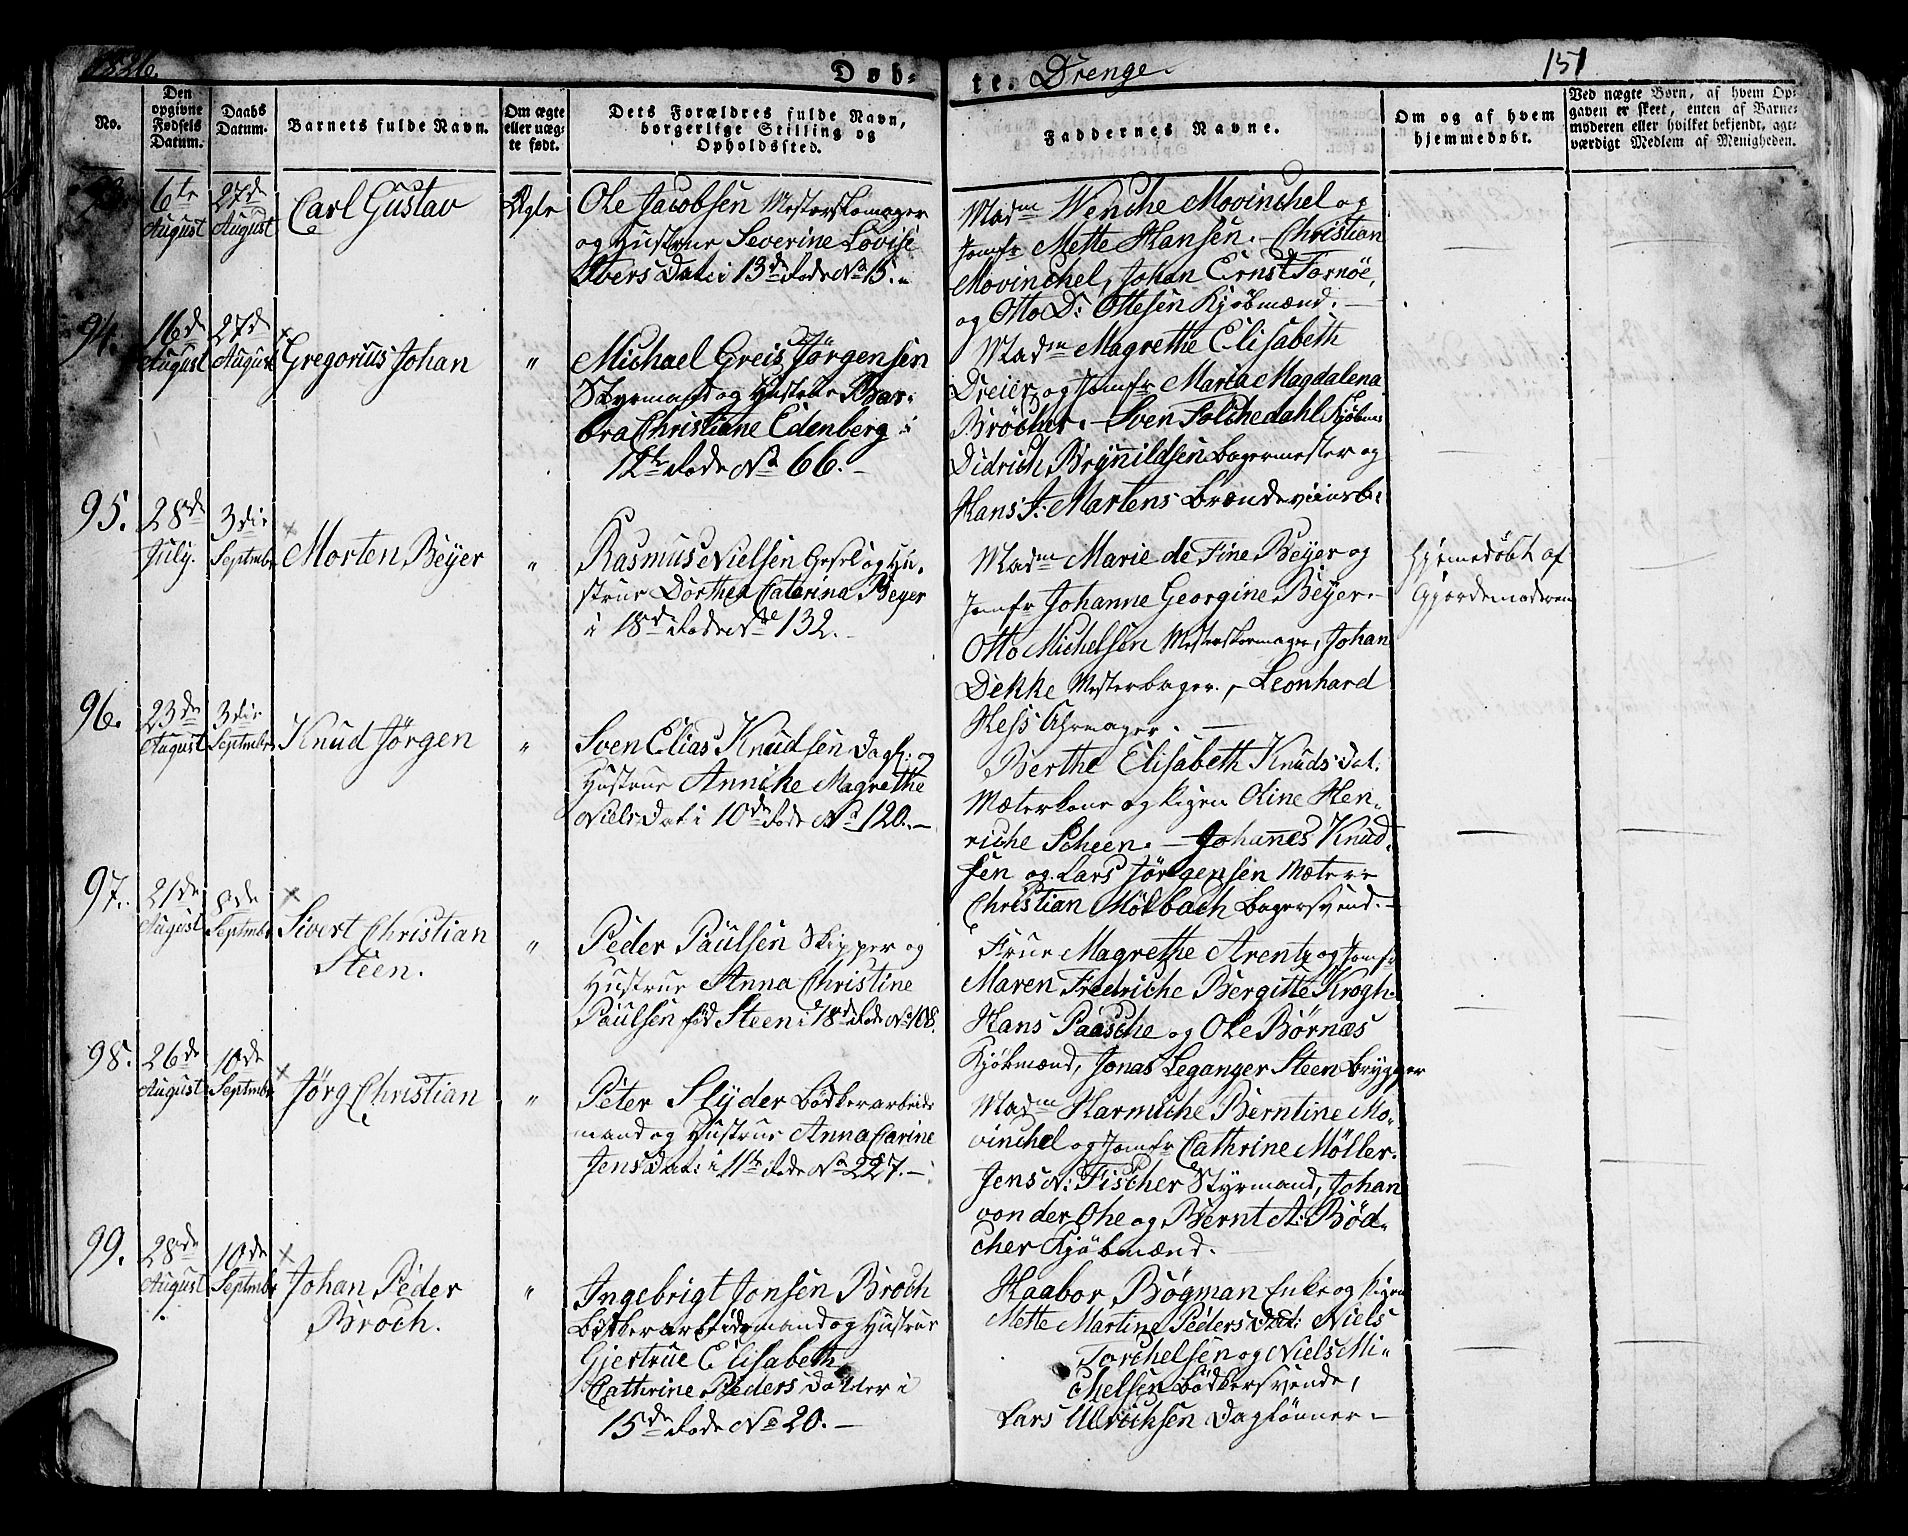 1826.
Døb-
te. Drenge.
151
No.
Den opgivne Fødsels Datum.
Daabs Datum.
Barnets fulde Navn.
Om ægte eller uæg-te født.
Dets Forældres fulde Navn, borgerlige Stilling og Opholdssted.
Faddernes Navne.
Om og af hvem hjemmedøbt.
Ved uægte Børn, af hvem Op-gaven er skeet, enten af Barne-moderen eller hvilket bekjendt, agt-værdigt Medlem af Menigheden.
93.
6te August
27de August
Carl Gustav
Ægte
Ole Jacobsen Mesterskomager
og Hustrue Severine Lovise
Ivers Dat: i 13de Rode No 15.
Madm Wenche Mowinchel og
Jomfr Mette Hansen. - Christian
Mowinchel, Johan Ernst Fornøe,
og Otto D: Ottesen Kjøbmænd. -
94.
16de August
27de August
Gregorius Johan
"
Michael Greis Jørgensen
Styrmand og Hustrue Bar-
bra Christiane Edenberg i
12te Rode No 66. -
Madm Magrethe Elisabeth
Dreier og Jomfr Maria Magdalena
Bröcher. - Sven Solchedahl Kjøbm:
Didrich Brynnildsen Bagermester og
Hans J: Martens Brændeviinsb:
95.
28de July.
3die Septmbr
Morten Beyer
"
Rasmus Nielsen Gesel og Hu-
strue Dorthea Catarina Beyer
i 18de Rode No 132. -
Madm Marie de Fine Beyer og
Jomfr Johanne Georgine Beyer. -
Otto Michelsen Mesterskomager, Johan
Dekke Mesterbager. - Leonhard
Hess Uhrmager. -
Hjemedöbt af
Gjordemoderen
96.
23de August
3die Septmbr
Knud Jörgen
"
Sven Elias Knudsen Dagl: og
Hustrue Annike Magrethe
Niels Dat i 10de Rode No 120. -
Berthe Elisabeth Knuds Dat.
Mæterkone og Pigen Oline Hen-
riche Scheen. - Johannes Knud-
sen og Lars Jörgensen Mætere
Christian Mölbach Bagersvend. -
97.
21de August
8de Septmbr
Sivert Christian
Steen.
"
Peder Paulsen Skipper og
Hustrue Anna Christine
Paulsen fød Steen i 18de Rode No 108.
Frue Magrethe Arentz og Jomfr
Maren Fredriche Bergitte Krogh.
Hans Paasche og Ole Börnæs
Kjøbmænd, Jonas Leganger Steen Brygger
98.
26de August
10de Septmbr
Jörg Christian
"
Peter Slyder Bødkerarbeids-
mand og Hustrue Anna Carine
Jens Dat: i 11te Rode No 227. -
Madm Harmiche Berntine Mo-
vinchel og Jomfr Cathrine Möller.
Jens N: Fischer Styrmand, Johan
von der Ohe og Bernt A: Bød-
cher Kjøbmænd.
99.
28de August
10de Septmbr
Johan Peder
Broch.
"
Ingebrigt Jonsen Broch
Bødkerarbeidsmand og Hustrue
Gjertrue Elisabeth
Cathrine Peders Datter i
15de Rode No 20. -
Haabor Bøgman Enke og Pigen
Mette Martine Peders Dat: Niels
Torchelsen og Niels Mi-
chelsen Bödkersvende,
Lars Ulrichsen Daglønner. -